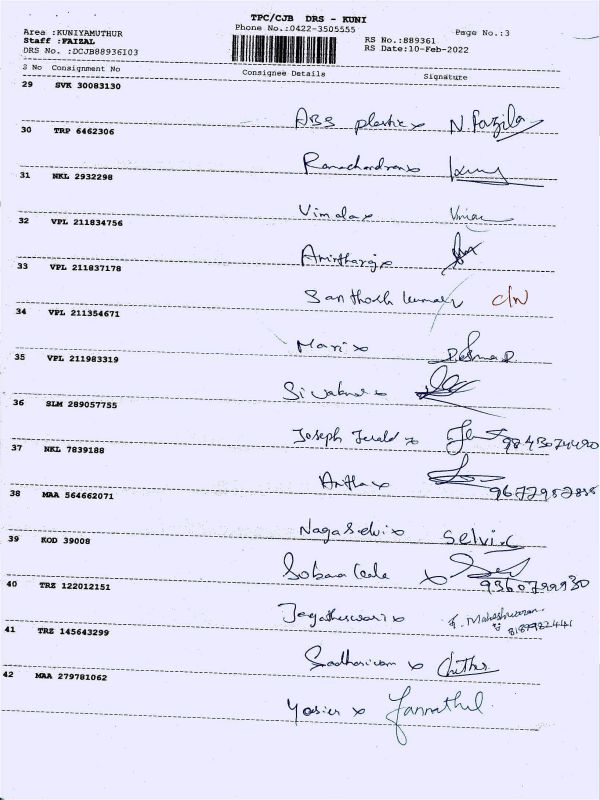 TPC/CJB DRS - KUNI
Area :KUNIYAMUTHUR Phone No.:0422-3505555 Page No.:3
Staff :FAIZAL RS No.:889361
DRS No. :DCJB88936103 RS Date:10-Feb-2022
S No Consignment No Consignee Details Signature
29 SVK 30083130
ABS plastic x N. Fazila
30 TRP 6462306
Ramachandran x
31 NKL 2932298
Vimala x
32 VPL 211834756
Amirtharaj x
33 VPL 211837178
Santhosh kumar C/N
34 VPL 211354671
Mari x
35 VPL 211983319
Sivakumar x
36 SLM 289057755
Joseph Jerald x 9843074490
37 NKL 7839188
Anitha x
38 MAA 564662071
Nagaselvi x Selvi.C
39 KOD 39008
x 9360799930
40 TRZ 122012151
Jagatheswari x J. Maheshwaran
41 TRZ 145643299
Sadhasivam x Chithra
42 MAA 279781062
Yasin x Jannathul